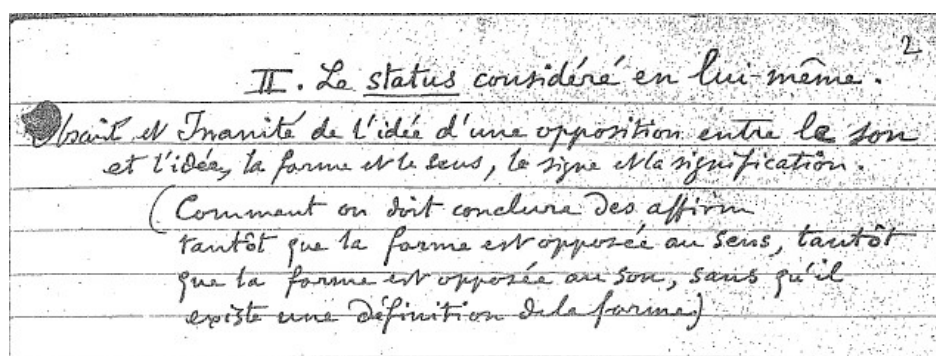 2
II. Le status considéré en lui-même.
et Inanité de l'idée d'une opposition entre le son
et l'idée, la forme et le sens, le signe et la signification.
(Comment on doit conclure des affirm
tantôt que la forme est opposée au sens, tantôt
que la forme est opposée au son, sans qu'il
existe une définition de la forme)